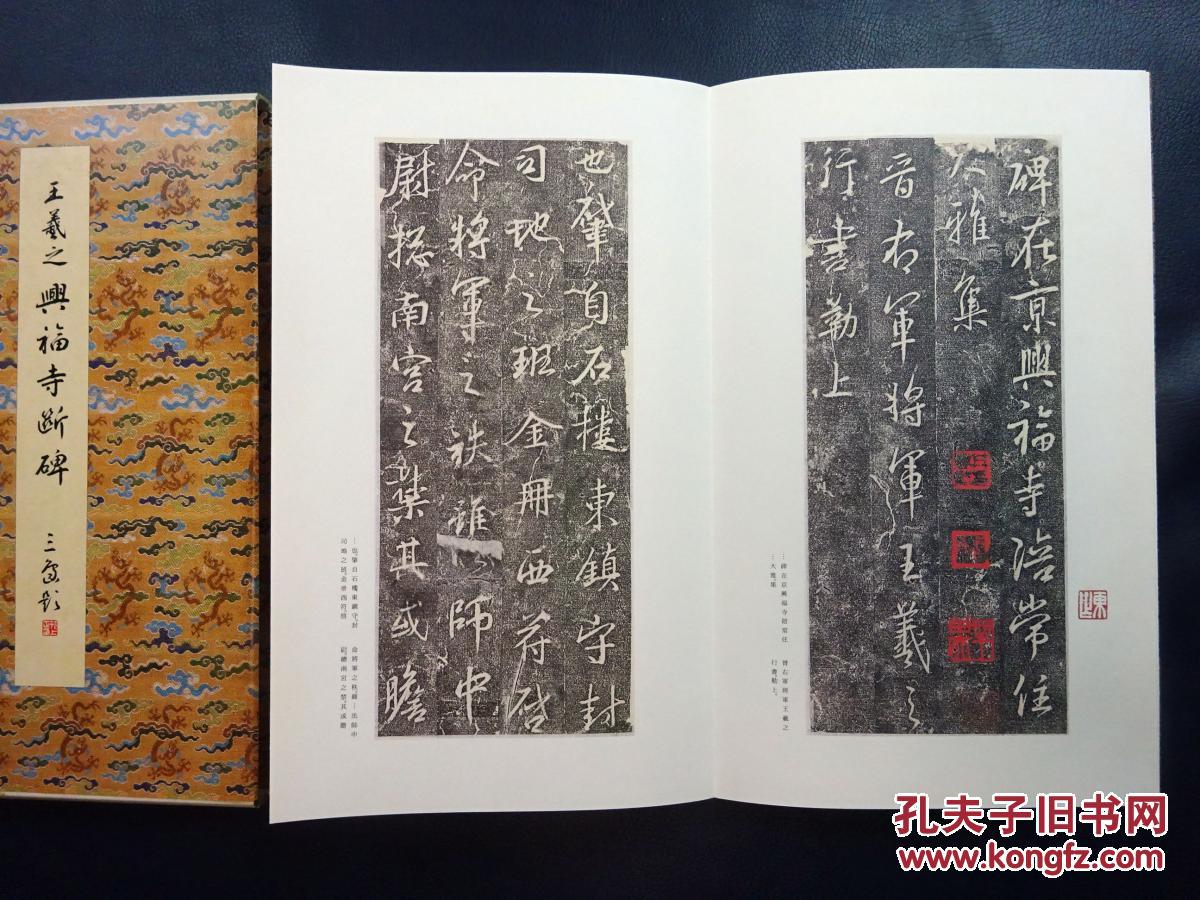 王羲之興福寺斷碑
碑在京興福寺陪常住
大雅集
晉右軍將軍王羲之
行書勒上
⋮碑在京興福寺陪常住
⋮大雅集
晉右軍將軍王羲之
行書勒上。
也肇自石樓東鎮守封
司地之班金冊西符啓
命將軍之秩雖師中
尉揔南宮之禁其或瞻
—也。肇自石樓東鎮守、封
司地之班。金冊西符。啓
命將軍之秩。雖—師中
尉。總南宮之禁。其或瞻
孔夫子旧书网
www.kongfz.com